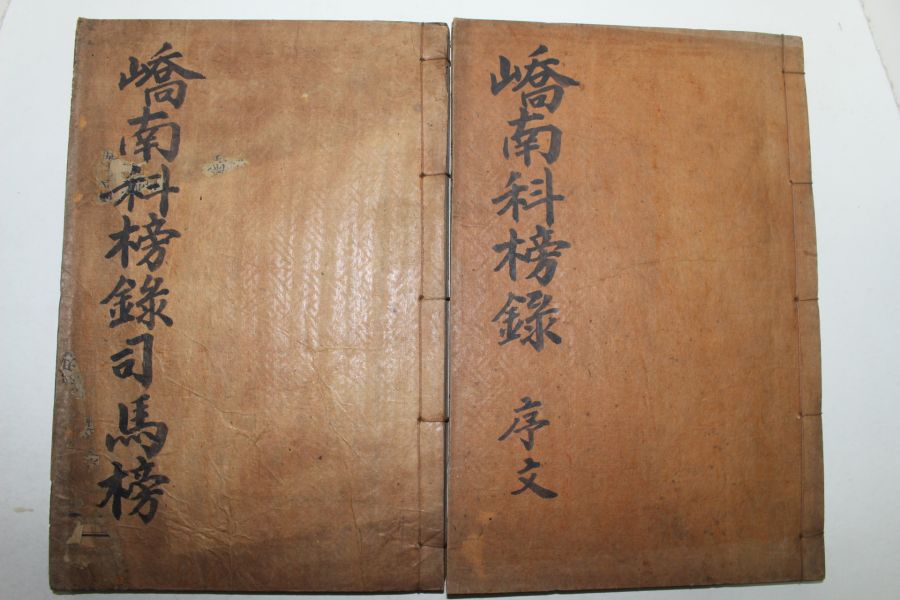 嶠南科榜錄 序文
嶠南科榜錄司馬榜 一